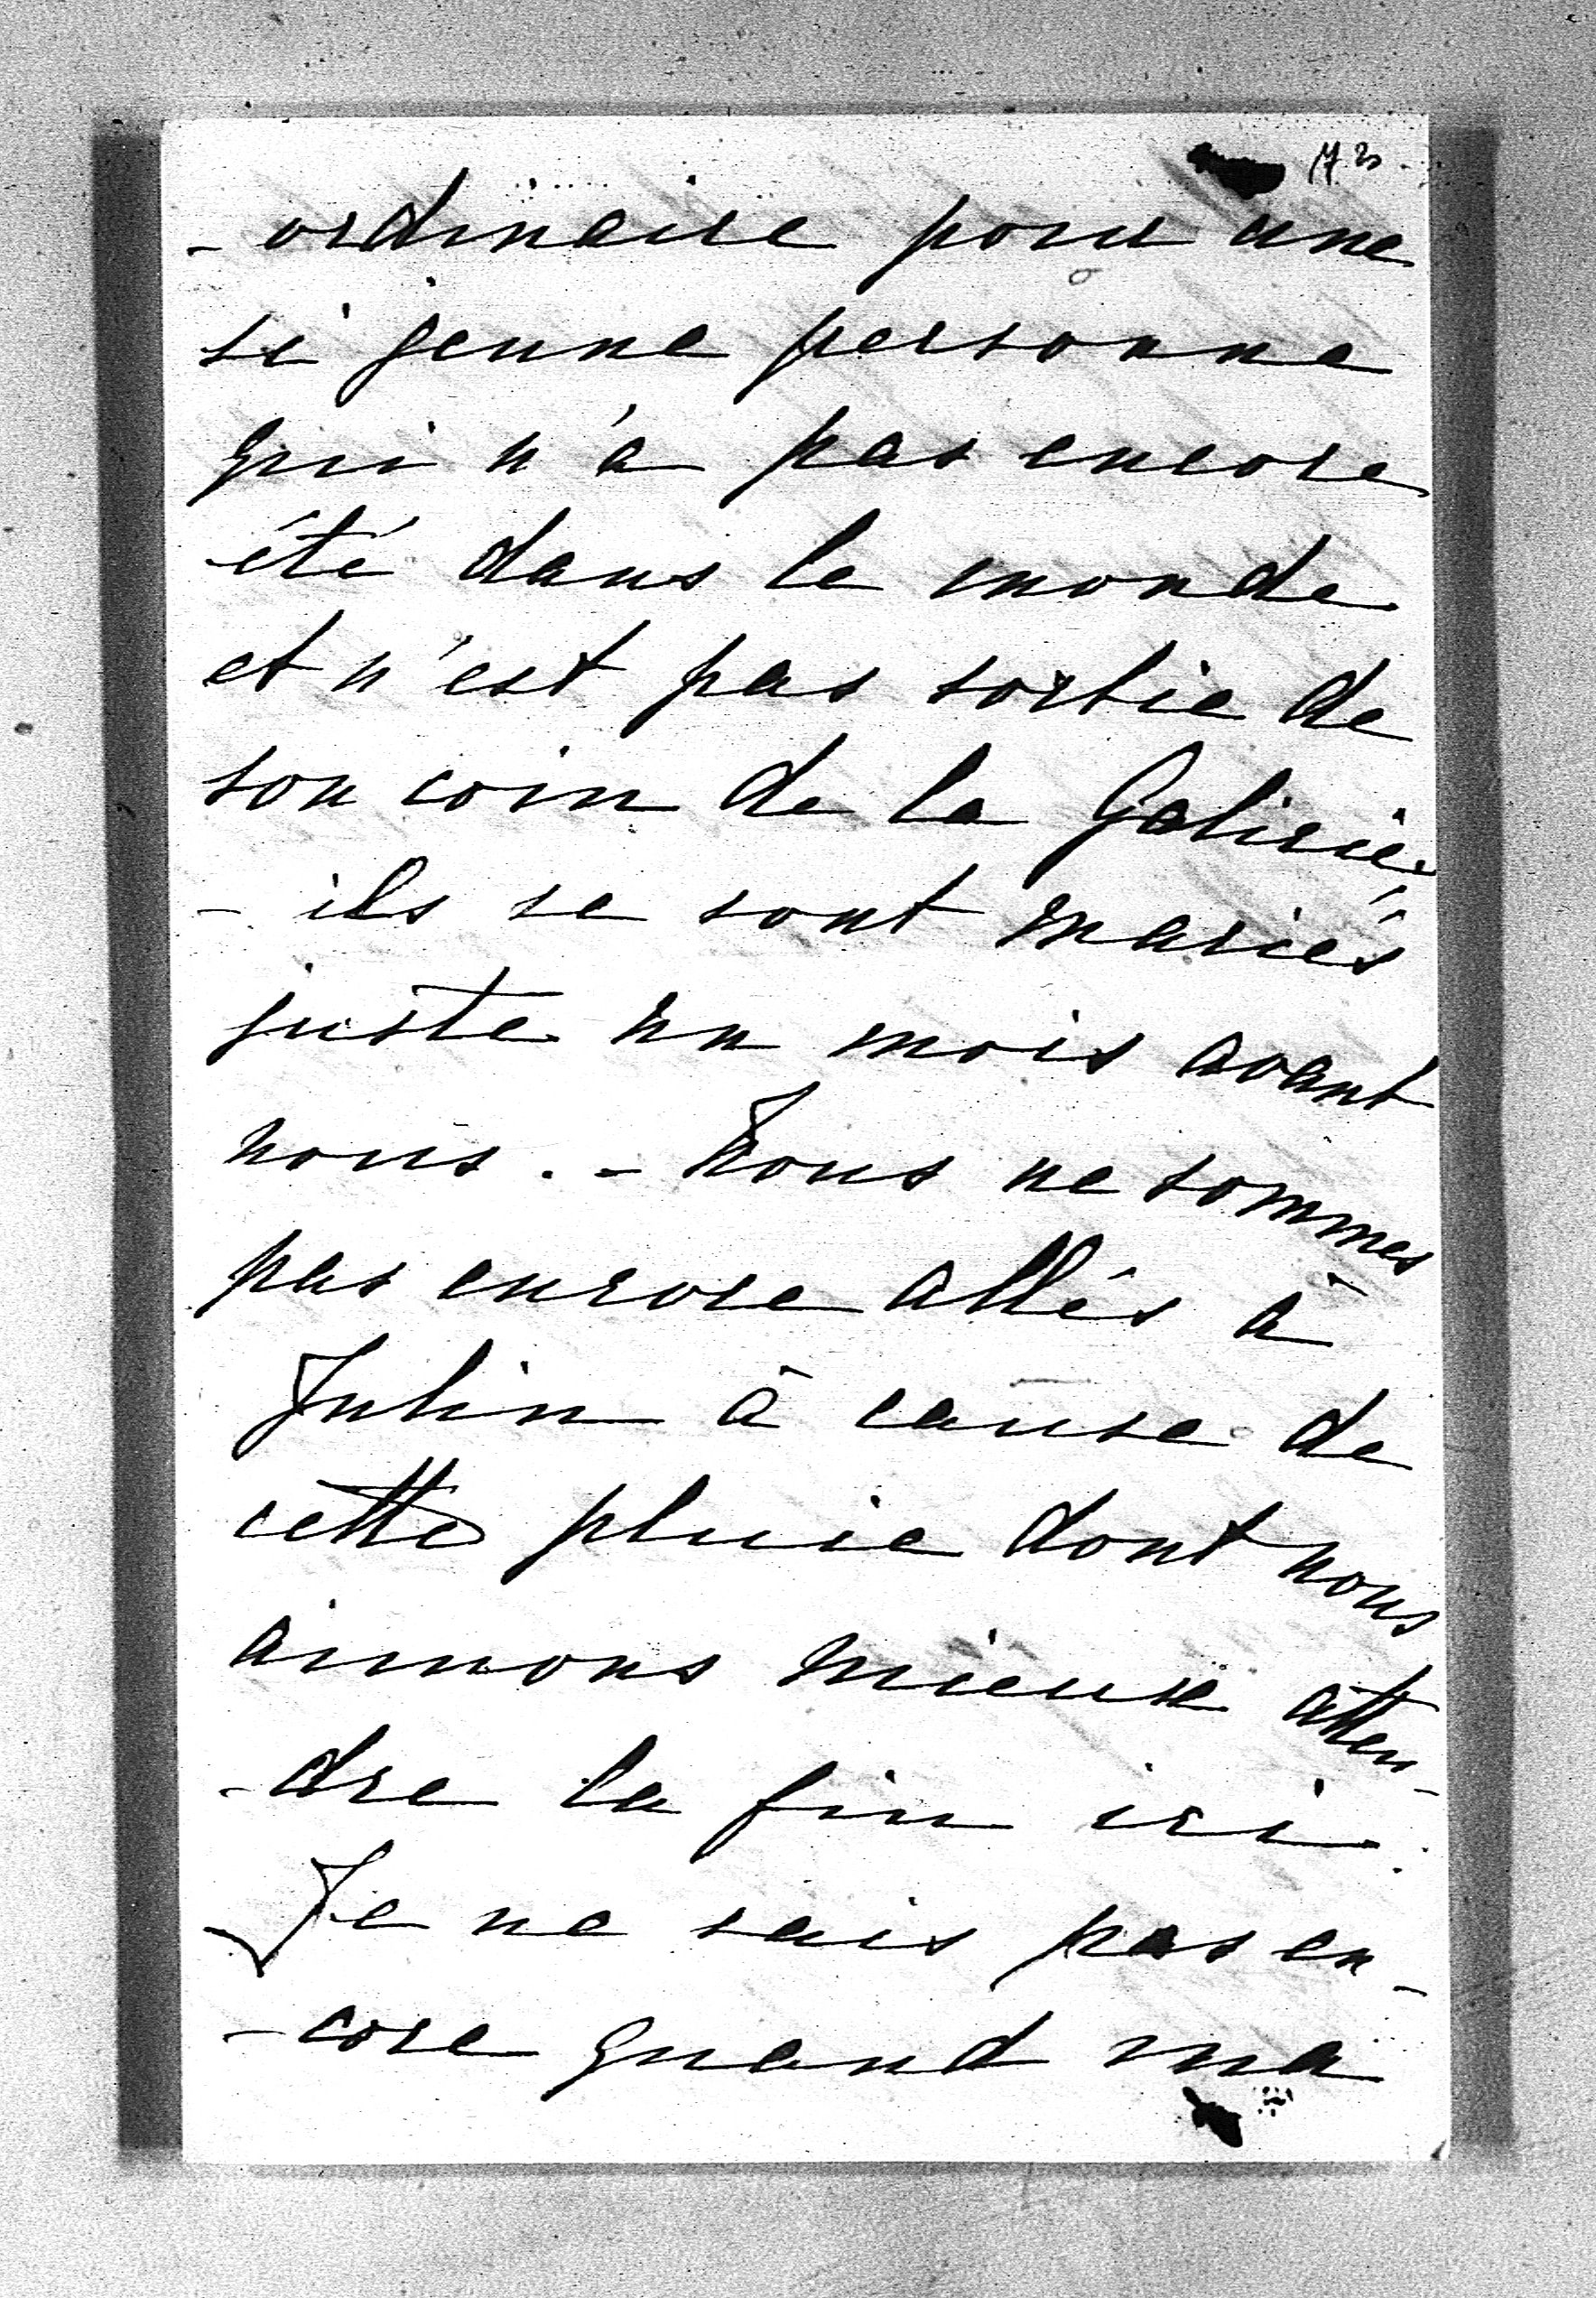 - ordinaire pour une
si jeune personne
qui n'a pas encore
été dans le monde
et n'est pas sortie de
son coin de la Galicie,
- ils se sont mariés
juste un mois avant
nous. - Nous ne sommes
pas encore allés à
Julin à cause de
cette pluie dont nous
aimons mieux atten-
-dre la fin ici.
Je ne sais pas en-
-core quand ma